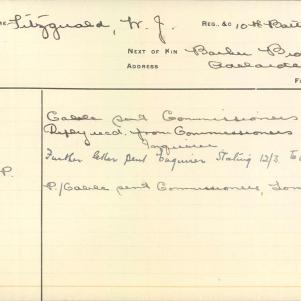 ME: Fitzgerald, W. J. REG. &C 10th Batt
NEXT OF KIN Barker Bro
ADDRESS
Cable sent Commissioners
Reply recd. from Commissioners
Inquirer
Further letter sent Enquirer Stating 12/3
P.
P/Cable sent Commissioners,